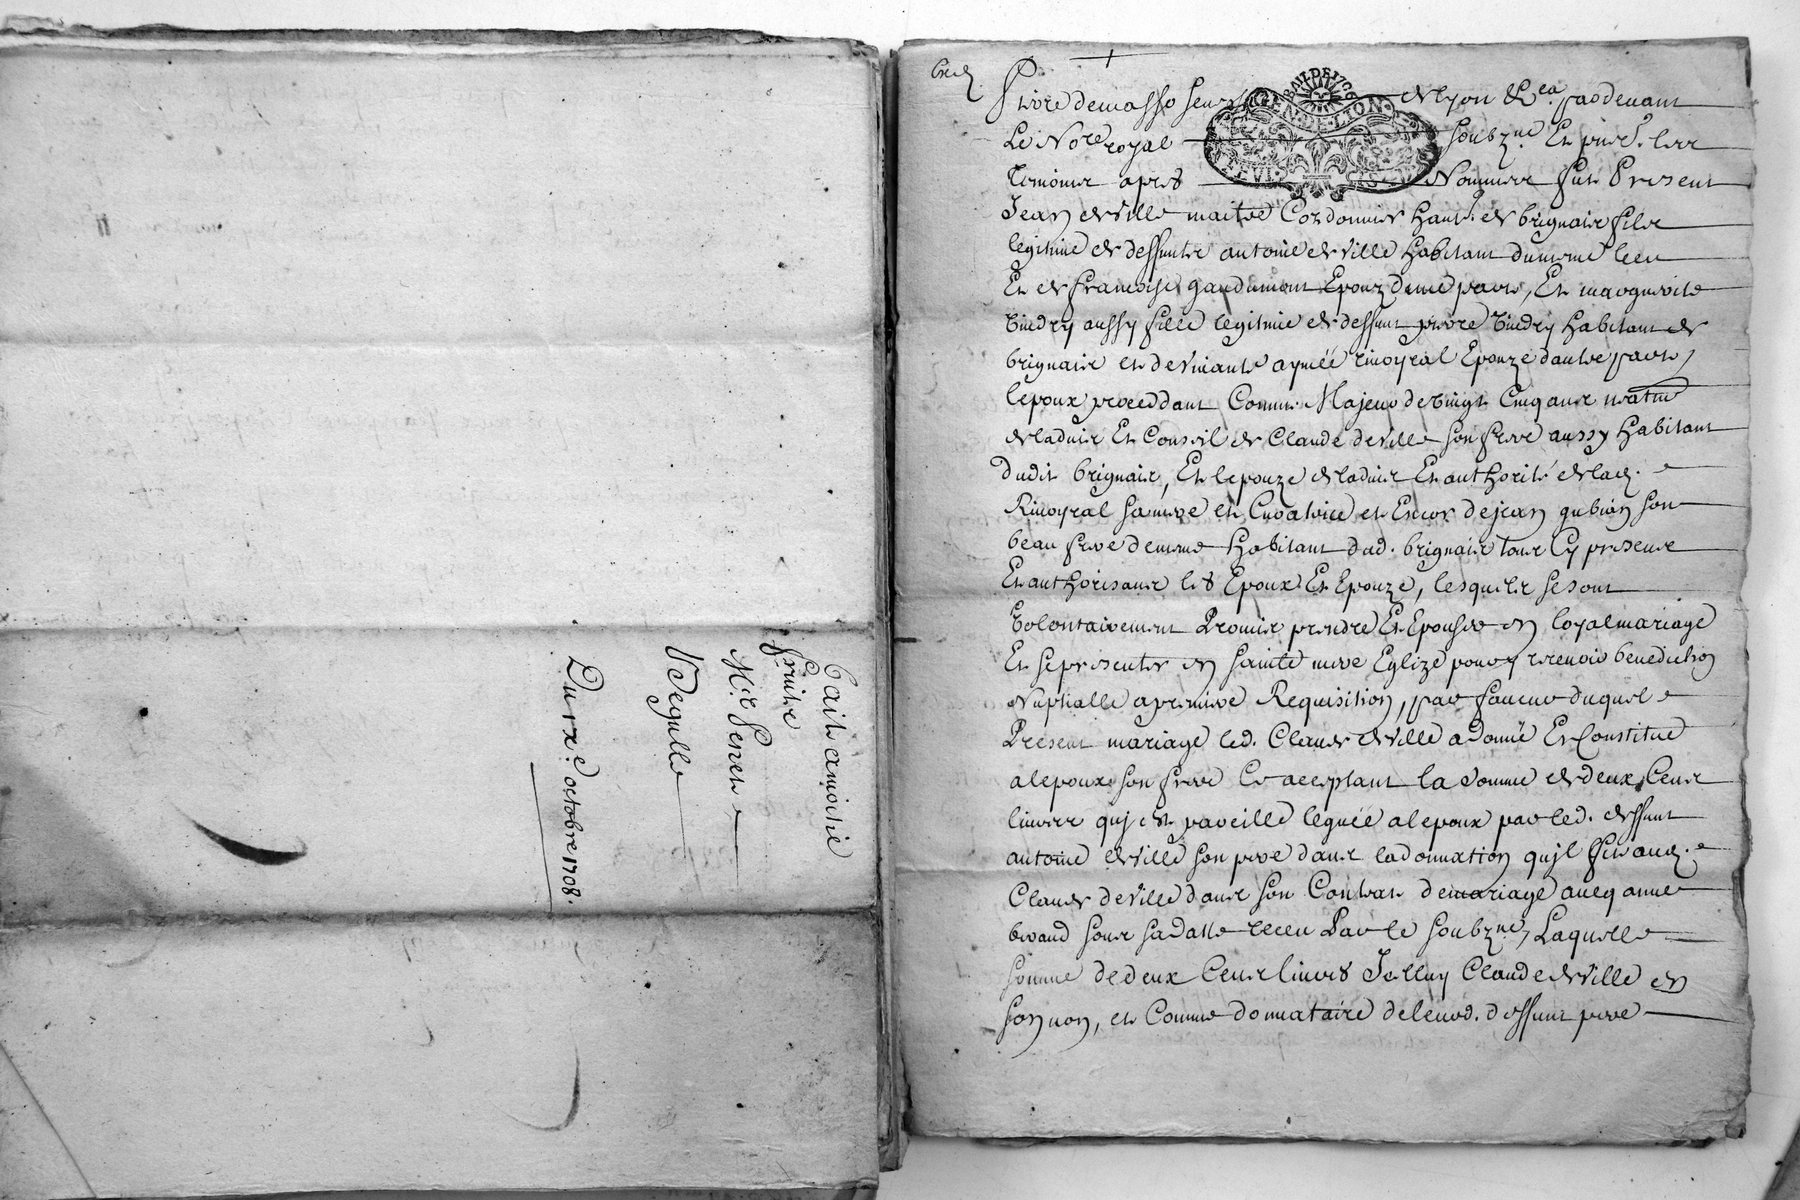 Bail à moitié
fruits
Mr. Servet
Vdegulle
Du ixe. octobre 1708.
BAIL DE 1706
GEN. DE LION
de lyon par devant
Le Nore royal soubzne. Et prēs. les
temoins apres Nommes fut Present
Jean deville maitre Cordonnier Habt. de brignais fils
legitime de deffunts antoine deville habitant du mesme lieu
Et de francoise gaudumont Epoux d'une part, Et marguerite
aussy fille legitime de deffunt pierre habitant de
brignais et de vivante aymée rivoyral Epouze dautre part,
lepoux proceddant Comme Majeur de vingt Cinq ans
de ladvis Et Conseil de Claude deville son frere aussy habitant
dudit brignais, Et lepouze de ladvis Et authorité de lad.
Rivoyral sa mere et Curatrice et Encor de jean gubian son
beau frere de mesme habitant dud. brignais tous Cy presens
Et authorisans les Epoux Et Epouze, lesquels se sont
volontairement Promis prendre Et Epouser en loyal mariage
Et se presenter en sainte mere Eglize pour y recevoir benediction
Nuptialle a premiere Requisition, par faveur duquel
Present mariage led. Claude deville a donné Et Constitué
a lepoux son frere Ce acceptant la somme de deux Cens
livres qui est pareille leguée a lepoux par led. deffunt
antoine deville son pere dans la donnation quil fit aud.
Claude deville dans son Contrat de mariage avec anne
beraud sous sa datte receu Par le soubzne, Laquelle
somme de deux Cens livres Icelluy Claude deville en
son nom, et Comme donnataire de lenod. deffunt pere